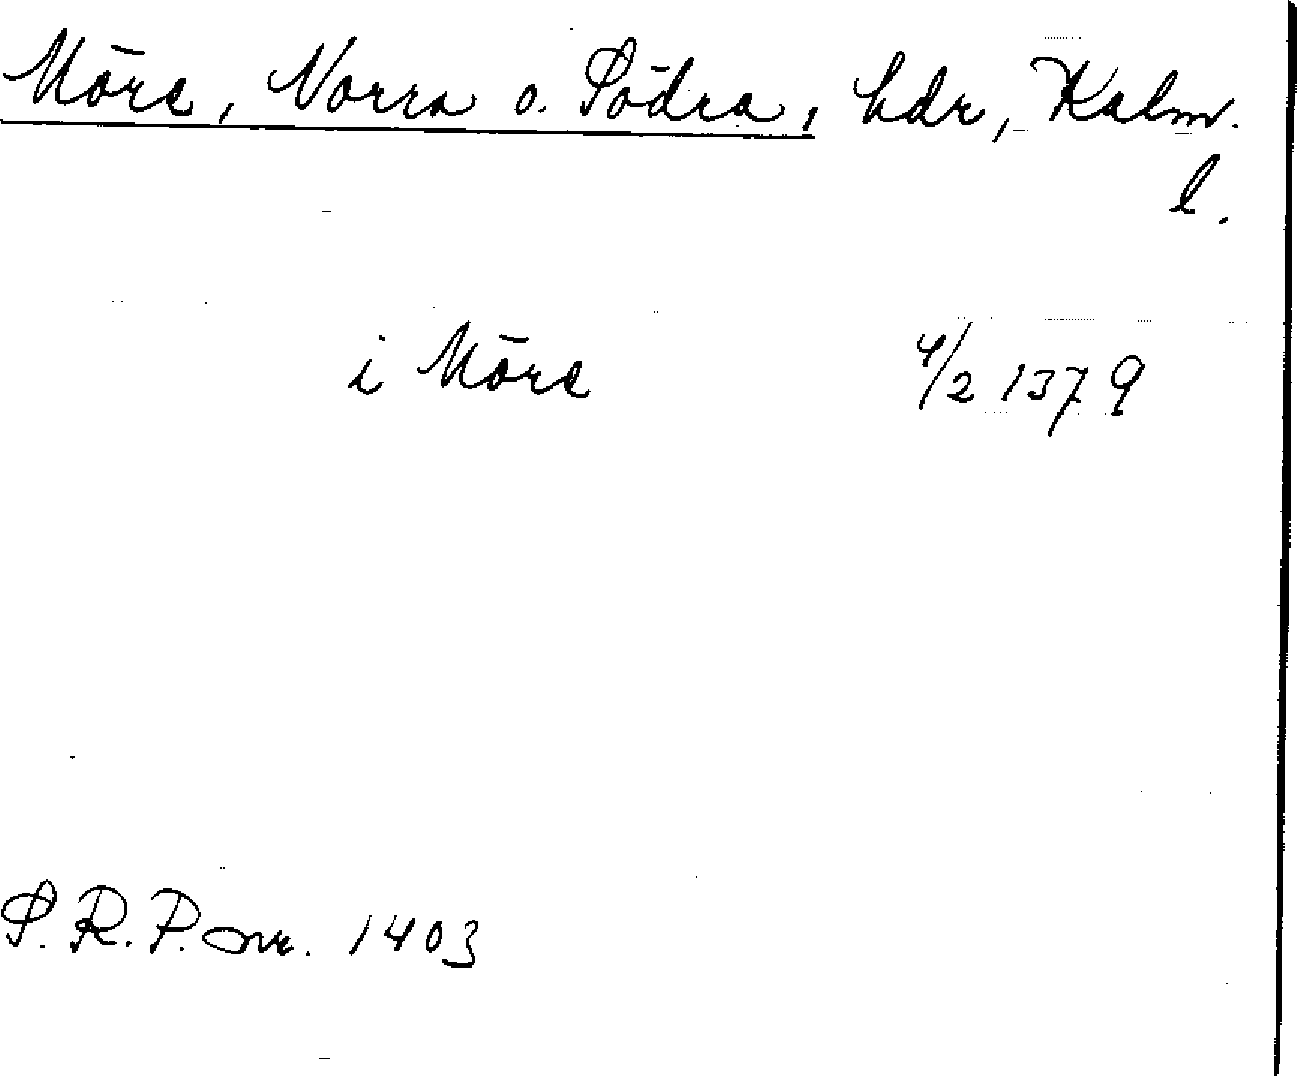 Möre, Norra o. Södra, hdr, Kalm.
l.
i Möre 4/2 1379
S.R.P. nr. 1403